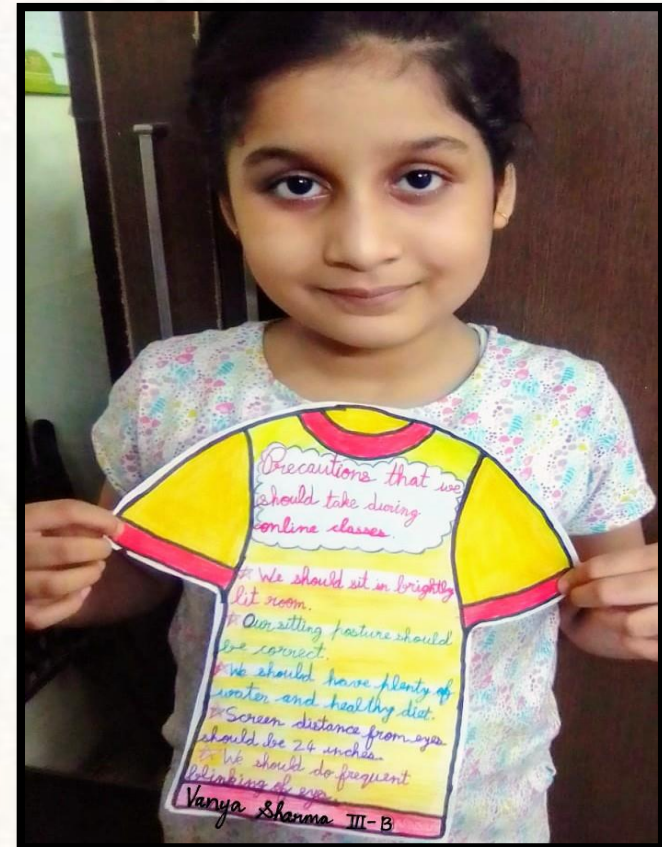 Precautions that we
should take during
online classes.
☆ We should sit in brightly
lit room.
☆ Our sitting posture should
be correct.
☆ We should have plenty of
water and healthy diet.
☆ Screen distance from eyes
should be 24 inches.
☆ We should do frequent
blinking of eyes.
Vanya Sharma III-B